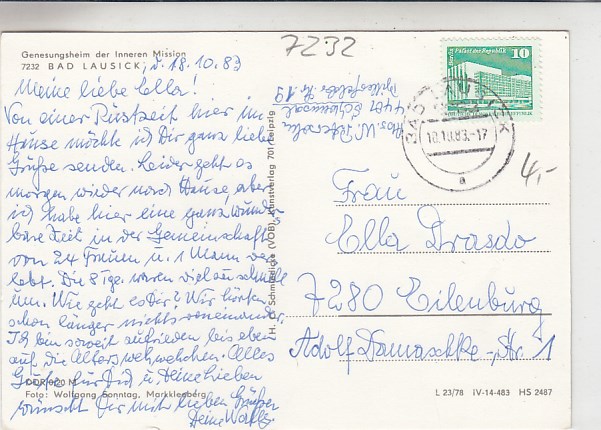 7232
Genesungsheim der Inneren Mission
7232 BAD LAUSICK, d. 18.10.83
Meine liebe Ella!
Von einer Rüstzeit hier im
Hause möchte ich Dir ganz liebe
Grüße senden. Leider geht es
morgen wieder nach Hause, aber
ich habe hier eine ganz wunder-
bare Zeit in der Gemeinschaft
von 24 Frauen u. 1 Mann ver-
lebt. Die 8 Tge. waren viel zu schnell
um. Wie geht es Dir? Wir hörten
schon länger nichts voneinander.
Ich bin soweit zufrieden bis eben
auf die Alterswehwehchen. Alles
Gute für Dich u. Deine Lieben
wünscht Dir mit lieben Grüßen
Deine
DDR 0,20 M
Foto: Wolfgang Sonntag, Markkleeberg
H. C. Schmiedicke (VOB), Kunstverlag 701 Leipzig
Abs. W.
Nr. 19
Palast der Republik
Berlin
10
18.10.83.-17
a
4,-
Frau
Ella Drasdo
7280 Eilenburg
Adolf-Damaschke-Str. 1
L 23/78 IV-14-483 HS 2487